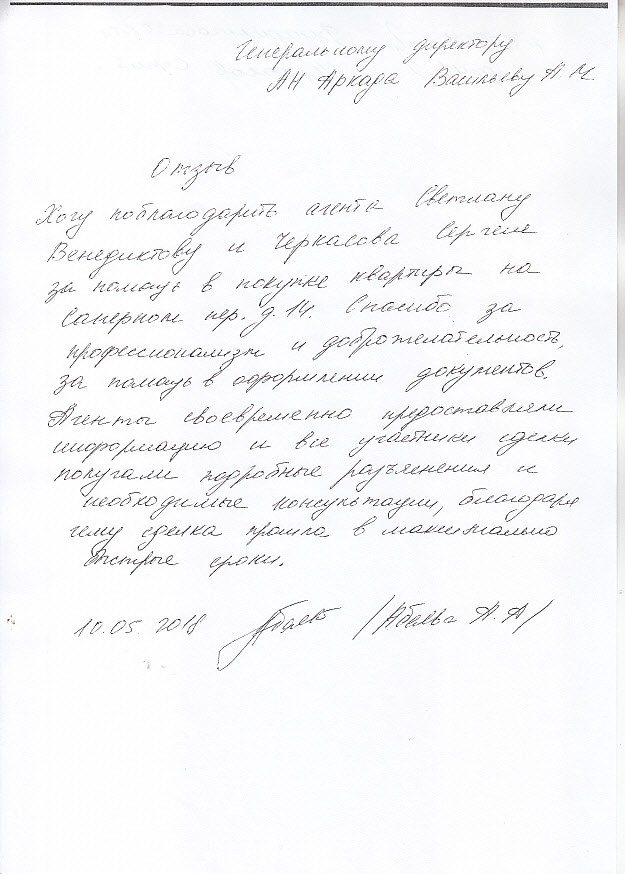 Генеральному директору
АН Аркада Васильеву А М.
Отзыв
Хочу поблагодарить агента Светлану
Венедиктову и Черкасова Сергея
за помощь в покупке квартиры на
Саперном пер. д. 14. Спасибо за
профессионализм и доброжелательность,
за помощь в оформлении документов.
Агенты своевременно предоставляли
информацию и все участники сделки
получали подробные разъяснения и
необходимые консультации, благодаря
чему сделка прошла в максимально
быстрые сроки.
10.05.2018 / А. А /